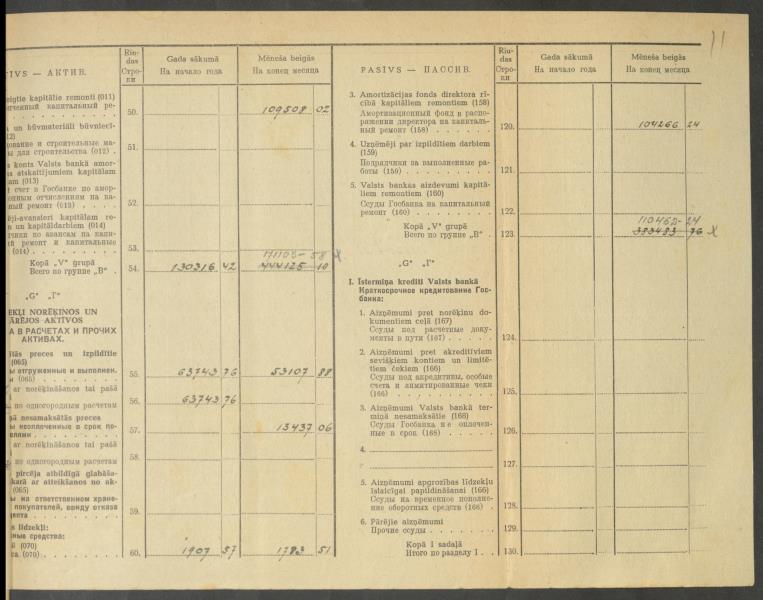 11
TĪVS — АКТИВ.
Rin-
das
Стро-
ки
Gada sākumā
На начало года
Mēneša beigās
На конец месяца
beigtie kapitālie remonti (011)
капитальный ре-
50.
109508 02
un būvmateriāli būvniecī-
и строительные ма-
ы для строительства (012) .
51.
konts Valsts bankā amor-
atskaitījumiem kapitālam
(013)
счет в Госбанке по амор-
отчислениям на ка-
ремонт (013)
52.
ēji-avansieri kapitālam re-
n un kapitāldarbiem (014)
по авансам на капи-
ремонт и капитальные
(014)
53.
171103-58 x
Kopā „V" grupā
Всего по группе „В" .
54.
130316 42
444125 10
„G" „Г"
EKĻI NORĒĶINOS UN
ĀRĒJOS AKTĪVOS
А В РАСЧЕТАХ И ПРОЧИХ
АКТИВАХ.
tās preces un izpildītie
(065)
отгруженные и выполнен.
(065)
55.
63743 76
53107 88
ar norēķināšanos tai pašā
по одногородным расчетам
56.
63743 76
nesamaksātās preces
неоплаченные в срок по-
57.
13437 06
ar norēķināšanos tai pašā
по одногородным расчетам
58.
pircēja atbildīgā glabāša-
karā ar atteikšanos no ak-
(065)
на ответственном хране-
покупателей, ввиду отказа
59.
līdzekļi:
средства:
(070)
(070)
60.
1907 57
1783 51
PASĪVS — ПАССИВ.
Rin-
das
Стро-
ки
Gada sākumā
На начало года
Mēneša beigās
На конец месяца
3. Amortizācijas fonds direktora rī-
cībā kapitāliem remontiem (158)
Амортизационный фонд в распо-
ряжении директора на капиталь-
ный ремонт (158)
120.
104266 24
4. Uzņēmēji par izpildītiem darbiem
(159)
Подрядчики за выполненные ра-
боты (159)
121.
5. Valsts bankas aizdevumi kapitā-
liem remontiem (160)
Ссуды Госбанка на капитальный
ремонт (160)
122.
110463-24
Kopā „V" grupā
Всего по группе „В" .
123.
383483 76 x
„G" „Г"
I. Īstermiņa krediti Valsts bankā
Краткосрочное кредитование Гос-
банка:
1. Aizņēmumi pret norēķinu do-
kumentiem ceļā (167)
Ссуды под расчетные доку-
менты в пути (167)
124.
2. Aizņēmumi pret akreditīviem
sevišķiem kontiem un limitē-
tiem čekiem (166)
Ссуды под акредитивы, особые
счета и лимитированные чеки
(166)
125.
3. Aizņēmumi Valsts bankā ter-
miņā nesamaksātie (168)
Ссуды Госбанка не оплачен-
ные в срок (168)
126.
4.
127.
5. Aizņēmumi apgrozības līdzekļu
īslaicīgai papildināšanai (166)
Ссуды на временное пополне-
ние оборотных средств (166) .
128.
6. Pārējie aizņēmumi
Прочие ссуды
129.
Kopā I sadaļā
Итого по разделу I . .
130.